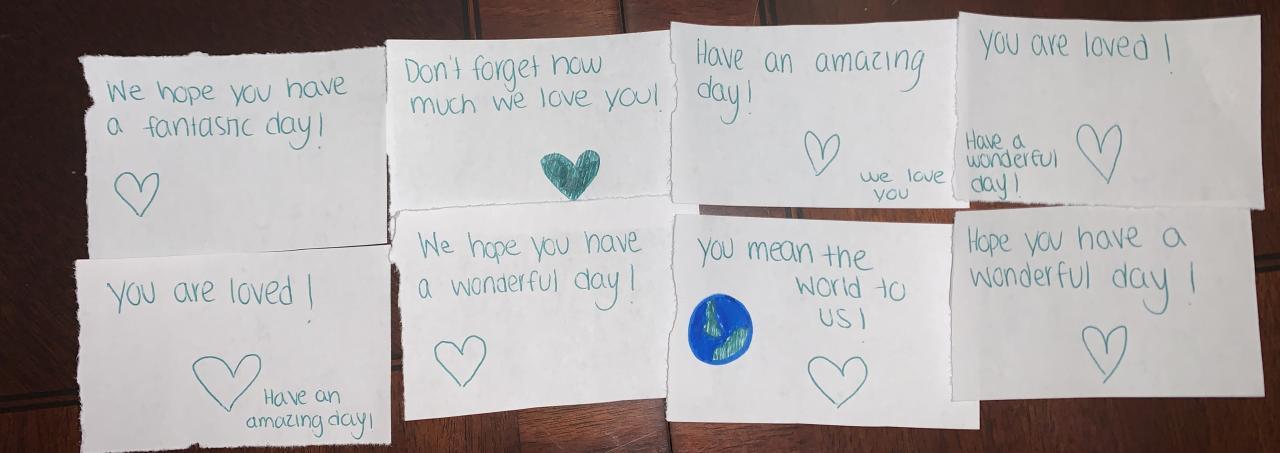 We hope you have
a fantastic day!
Don't forget how
much we love you!
Have an amazing
day!
we love
you
you are loved!
Have a
wonderful
day!
you are loved!
Have an
amazing day!
We hope you have
a wonderful day!
you mean the
world to
us!
Hope you have a
wonderful day!